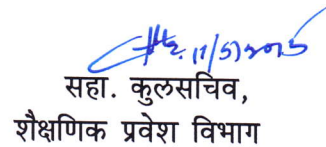 11/5/2015
सहा. कुलसचिव,
शैक्षणिक प्रवेश विभाग